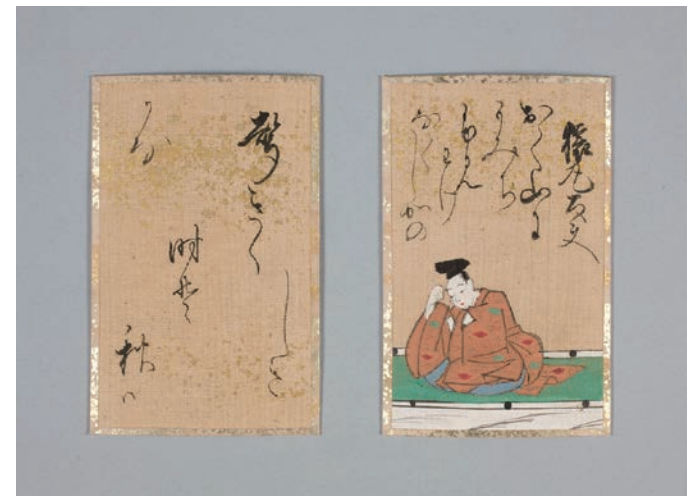 猿丸大夫
おく山に
もみち
ふみわけ
なくしかの
声きく
時そ
秋は
かな
しき